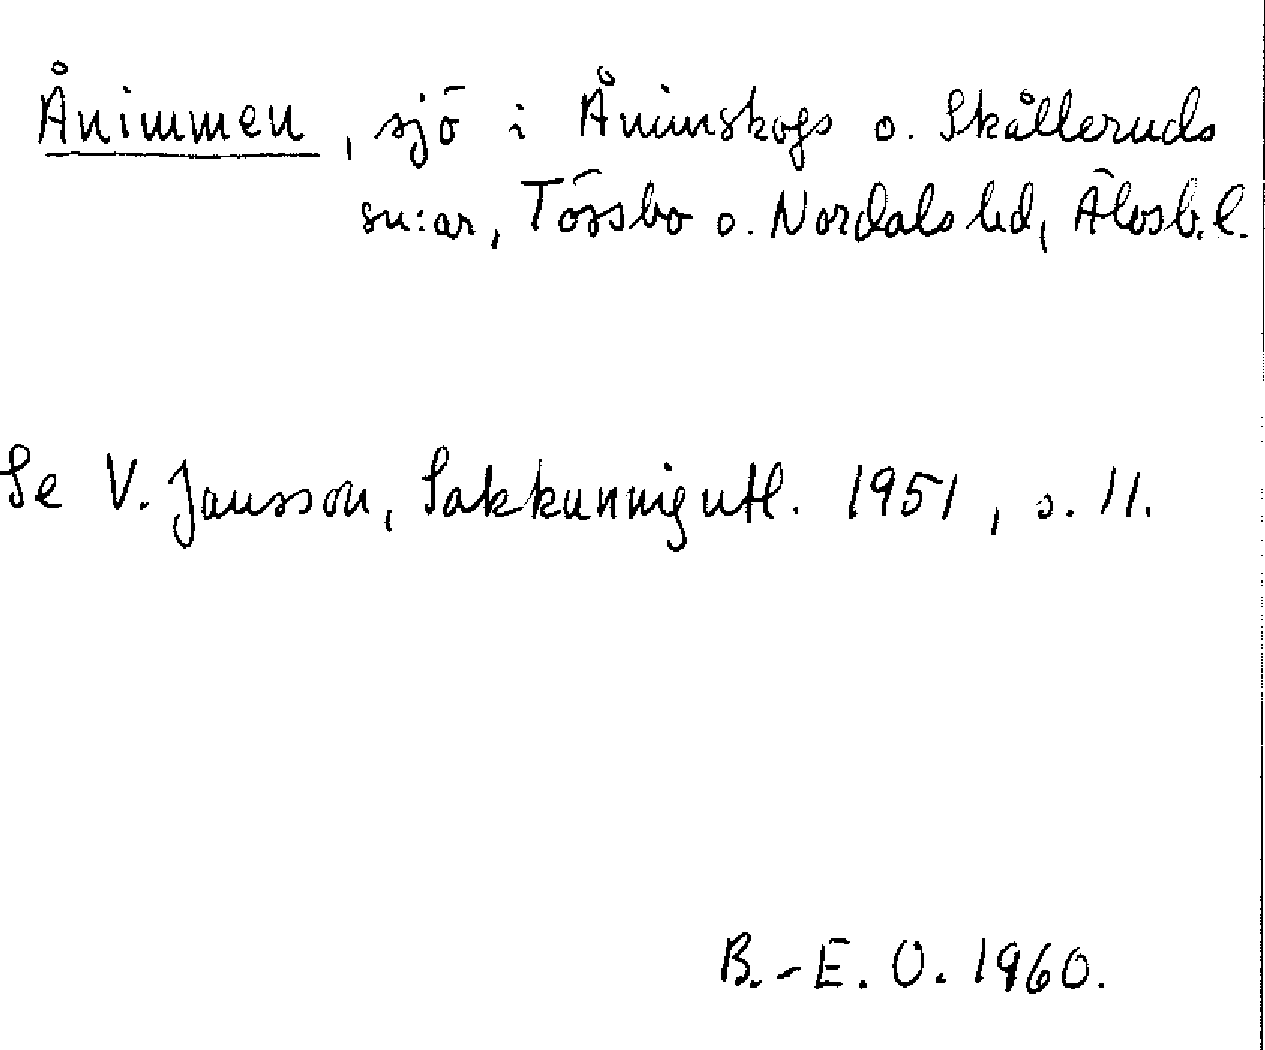 Ånimmen, sjö i Ånimskogs o. Skålleruds
sn:ar, Tössbo o. Nordals hd, Älvsb. l.
Se V. Jansson, Sakkunnigutl. 1951, s. 11.
B.-E. O. 1960.